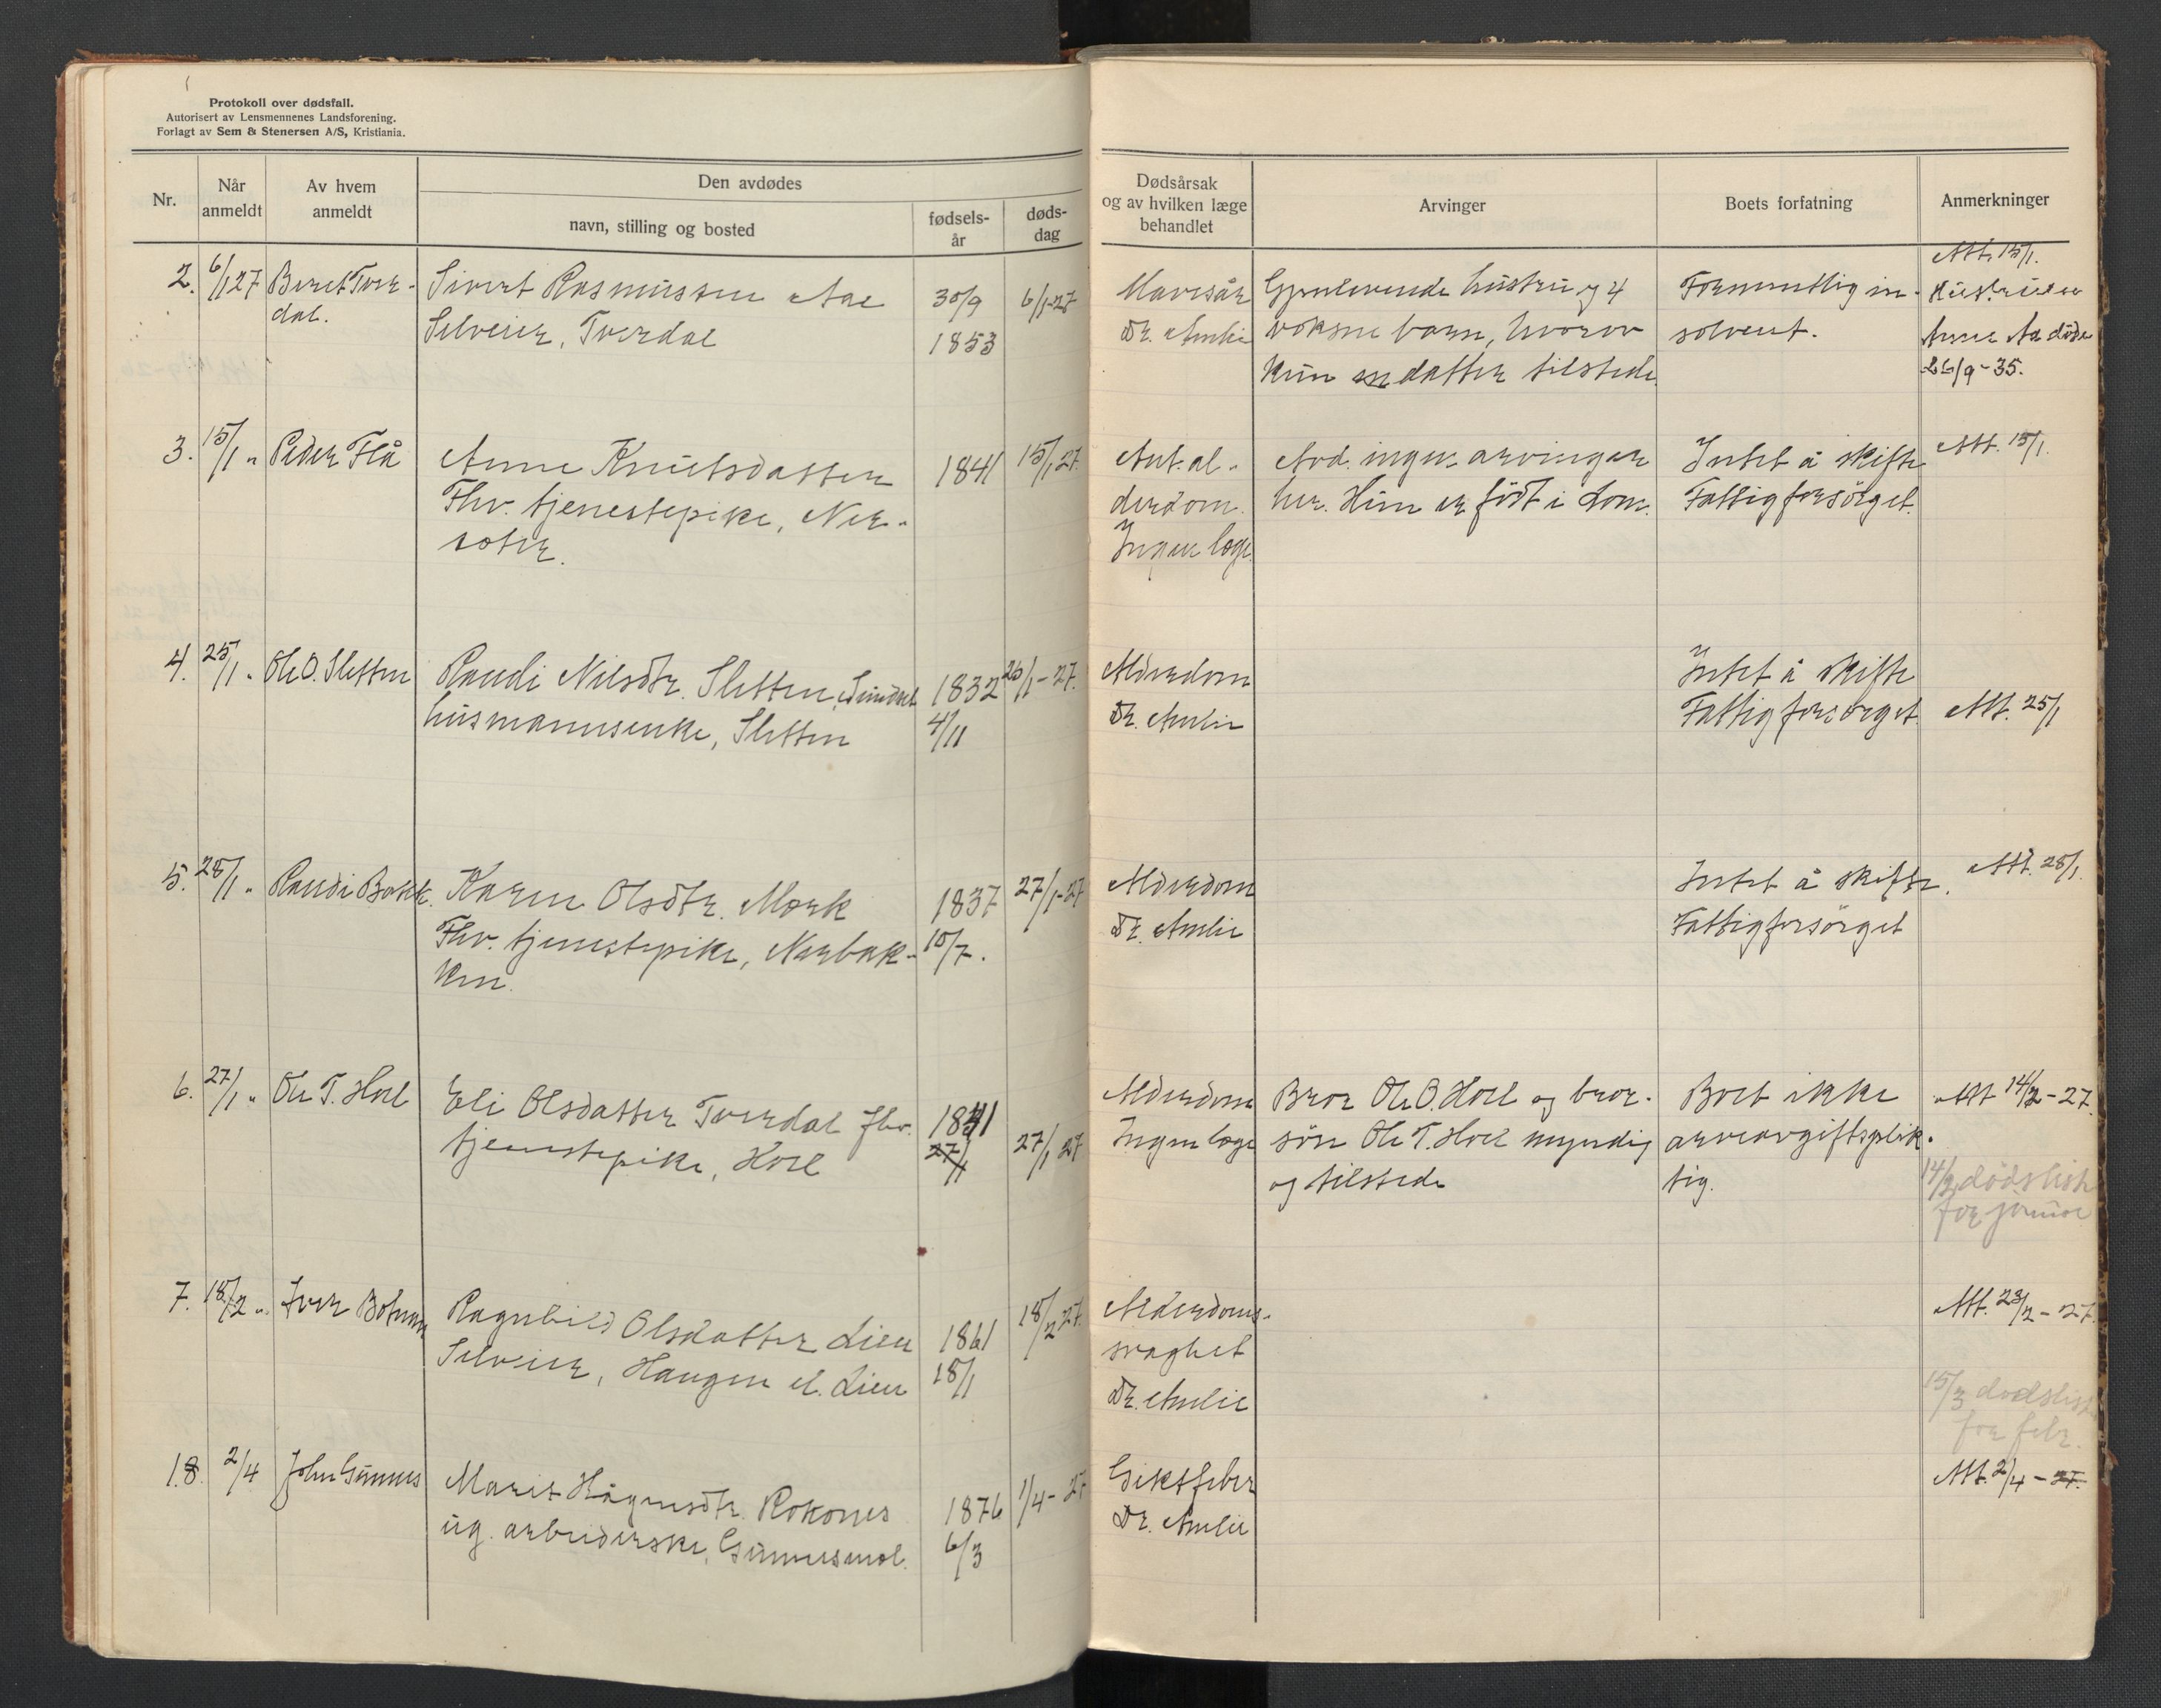 Protokoll over dødsfall.
Autorisert av Lensmennenes Landsforening.
Forlagt av Sem & Stenersen A/S, Kristiania.
Nr.
Når
anmeldt
Av hvem
anmeldt
Den avdødes
navn, stilling og bosted
fødsels-
år
døds-
dag
Dødsårsak
og av hvilken læge
behandlet
Arvinger
Boets forfatning
Anmerkninger
2. 6/1 27 Beret Tver-
dal.
Sivert Rasmussen Aae
Selveier, Tverdal
30/9
1853
6/1-27
Mavesår
Dr. Amlie
Gjenlevende hustru og 4
voksne barn, hvorav
kun en datter tilstede.
Formentlig in-
solvent.
Att. 15/1.
Hustruen
Anne Aa døde
26/9-35.
3. 15/1 " Peder Flå
Anne Knutsdatter
Fhv. tjenestepike, Ner-
sæter.
1841
15/1 27.
Ant. al-
derdom.
Ingen læge.
Avd. ingen arvinger
her. Hun er født i Lom.
Intet å skifte
Fattigforsørget.
Att. 15/1.
4. 25/1 " Ole O. Sletten
Randi Nilsdtr. Sletten,
husmannsenke, Sletten
1832
4/11
-27.
Alderdom
Dr. Amlie
Intet å skifte
Fattigforsørget
Att. 25/1
5. 28/1 " Randi Bakk.
Karen Olsdtr. Mork
Fhv. tjenestepike, Nerbak-
ken.
1837
10/7.
27/1-27
Alderdom
Dr. Amlie
Intet å skifte.
Fattigforsørget
Att. 28/1.
6. 27/1 " Ole T. Hoel
Eli Olsdatter Tverdal fhv.
tjenestepike, Hoel
1841
27/1
27/1 27
Alderdom
Ingen læge
Bror Ole O. Hoel og bror-
søn Ole T. Hoel myndig
og tilstede
Boet ikke
arveavgiftsplik-
tig.
Att 14/2-27.
14/2 dødsliste
for januar
7. 18/2 " Iver Botnen
Ragnhild Olsdatter Lien
Selveier, Haugen el. Lien
1861
18/1
18/2 27.
Alderdoms-
svaghet
Dr. Amlie
Att. 23/2-27.
15/3 dødsliste
for febr.
18. 2/4 John Grimnes
Marit Hågensdtr. Rokones
ug. arbeiderske,
1876
6/3
1/4-27
Giktfeber
Dr. Amlie
Att. 2/4-27.